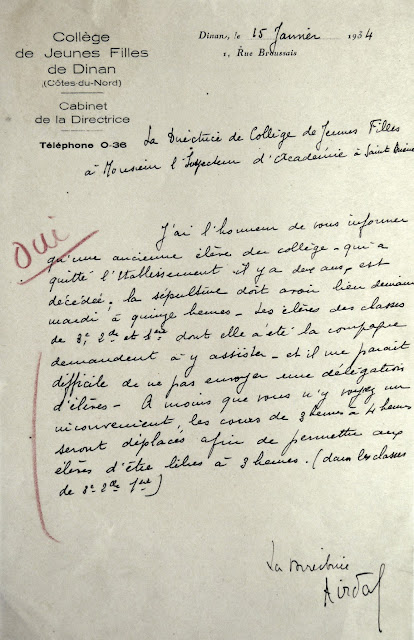 Collège
de Jeunes Filles
de Dinan
(Côtes-du-Nord)
Cabinet
de la Directrice
Téléphone 0-36
Dinan, le 15 Janvier 1934
1, Rue Broussais
La Directrice de Collège de Jeunes Filles
à Monsieur l'Inspecteur d'Académie à Saint Brieuc
Oui
J'ai l'honneur de vous informer
qu'une ancienne élève du collège - qui a
quitté l'Etablissement il y a deux ans, est
décédée; la sépulture doit avoir lieu demain
mardi à quinze heures - Les élèves des classes
de 3e, 2de et 1ère dont elle a été la compagne
demandent à y assister - et il me paraît
difficile de ne pas envoyer une délégation
d'élèves - A moins que vous n'y voyez un
inconvénient, les cours de 3 heures à 4 heures
seront déplacés afin de permettre aux
élèves d'être libres à 3 heures. (dans les classes
de 3e 2de 1ère)
La Directrice